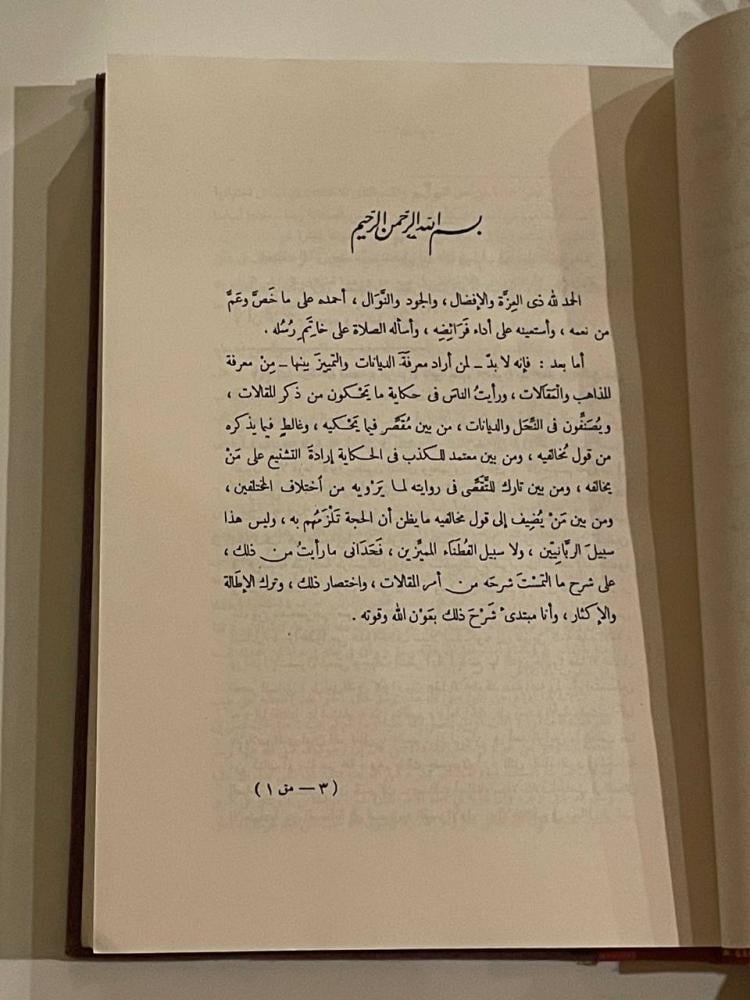 بسم الله الرحمن الرحيم
الحمد لله ذى العِزَّة والإفضال ، والجود والنَّوَال ، أحمده على ما خَصَّ وعَمَّ
من نعمه ، وأستعينه على أداء فَرَائِضِه ، وأسأله الصلاة على خاتَمِ رُسُله .
أما بعد : فإنه لا بدّ ــ لمن أراد معرفَةَ الديانات والتمييزَ بينها ــ مِنْ معرفة
المذاهب والمَقالات ، ورأيتُ الناسَ فى حكاية ما يَحْكون من ذكر المقالات ،
ويُصَنِّفون فى النِّحَل والديانات ، من بين مُقَصِّر فيما يَحْكيه ، وغالطٍ فيما يذكره
من قول مُخالفيه ، ومن بين معتمد للكذب فى الحكاية إرادةَ التشنيع على مَنْ
يخالفه ، ومن بين تارك للتَّقَصِّى فى روايته لما يَرْويه من أختلاف المختلفين ،
ومن بين مَنْ يُضِيف إلى قول مخالفيه ما يظن أن الحجة تَلْزَمُهُم به ، وليس هذا
سبيلَ الرَّبَّانِيّين ، ولا سبيل الفُطَنَاء المميِّزين ، فَحَدَانى ما رأيتُ من ذلك ،
على شرح ما التَمَسْتَ شرحَه من أمر المقالات ، واختصار ذلك ، وترك الإطَالة
والإكثار ، وأنا مبتدئ شَرْحَ ذلك بعَوْن الله وقوته .
( ٣ — مق ١ )